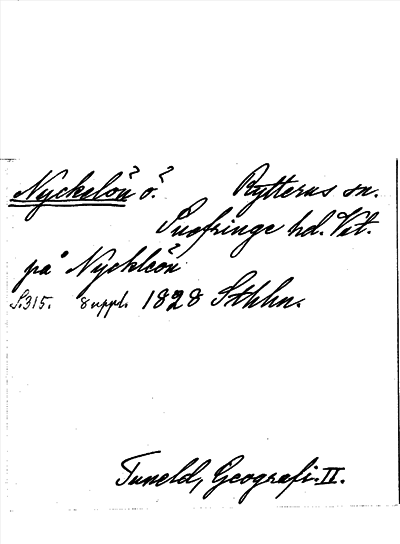 Nyckelön ö. Rytterns sn.
Snefringe hd. Vst.
på Nyckleön
S.315. 8 uppl. 1828 Sthlm.
Tuneld, Geografi. II.